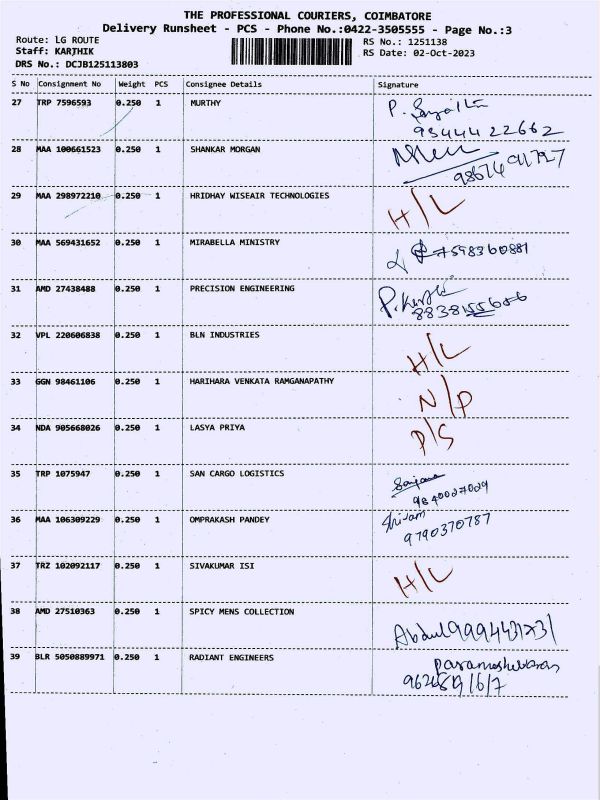 THE PROFESSIONAL COURIERS, COIMBATORE
Delivery Runsheet - PCS - Phone No.:0422-3505555 - Page No.:3
Route: LG ROUTE RS No.: 1251138
Staff: KARTHIK RS Date: 02-Oct-2023
DRS No.: DCJB125113803
S No Consignment No Weight PCS Consignee Details Signature
27 TRP 7596593 0.250 1 MURTHY P.
9344422662
28 MAA 100661523 0.250 1 SHANKAR MORGAN
29 MAA 298972210 0.250 1 HRIDHAY WISEAIR TECHNOLOGIES H/L
30 MAA 569431652 0.250 1 MIRABELLA MINISTRY 7598360881
31 AMD 27438488 0.250 1 PRECISION ENGINEERING
32 VPL 220606838 0.250 1 BLN INDUSTRIES H/L
33 GGN 98461106 0.250 1 HARIHARA VENKATA RAMGANAPATHY N/P
34 NDA 905668026 0.250 1 LASYA PRIYA P/S
35 TRP 1075947 0.250 1 SAN CARGO LOGISTICS
9840027029
36 MAA 106309229 0.250 1 OMPRAKASH PANDEY
9790370787
37 TRZ 102092117 0.250 1 SIVAKUMAR ISI H/L
38 AMD 27510363 0.250 1 SPICY MENS COLLECTION Abdul
39 BLR 5050889971 0.250 1 RADIANT ENGINEERS